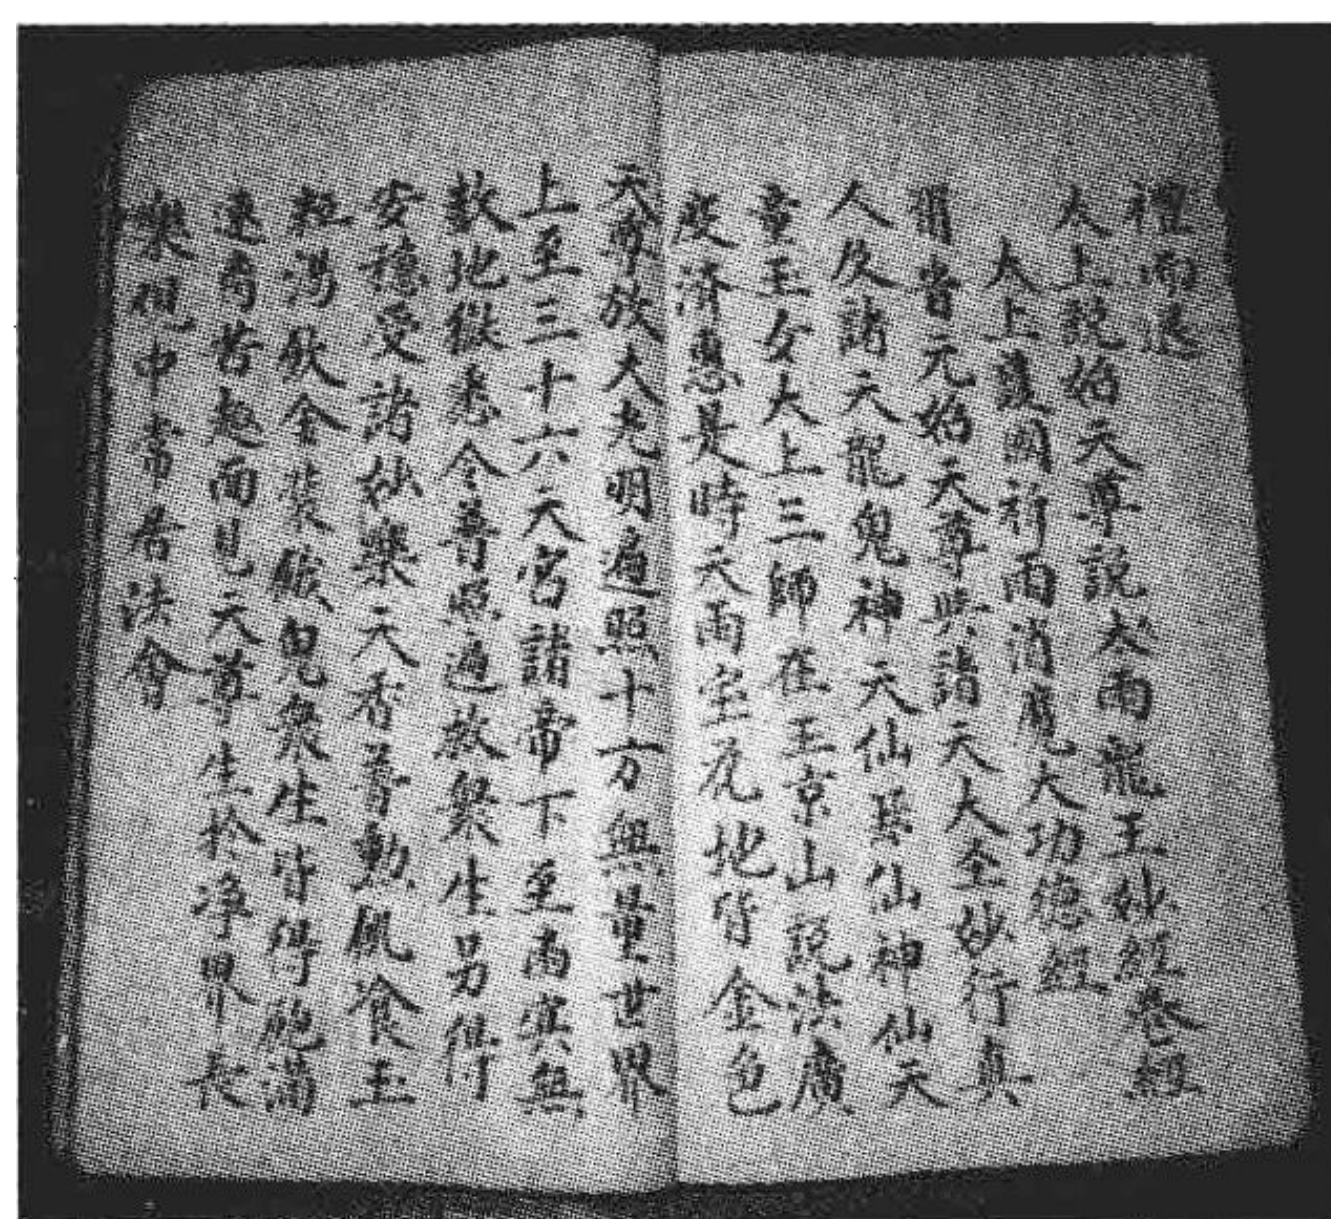 禮而退
太上説始天尊説大雨龍王妙經卷經
太上護國祈雨消魔大功德經
爾昔元始天尊與諸天大全妙行真
人及諸天龍鬼神天仙真仙神仙天
童玉女太上三師在玉京山説法廣
度濟惠是時天雨宝花地皆金色
天尊放大光明遍照十方無量世界
上至三十六天宫諸帝下至幽冥無
数地獄悉令普照遍放衆生另得
安穩受諸仙樂天香普勲飢飡玉
粒渴飲金装餓鬼衆生皆得飽滿
速离苦趣面見天尊生於净界長
樂視中常居法會